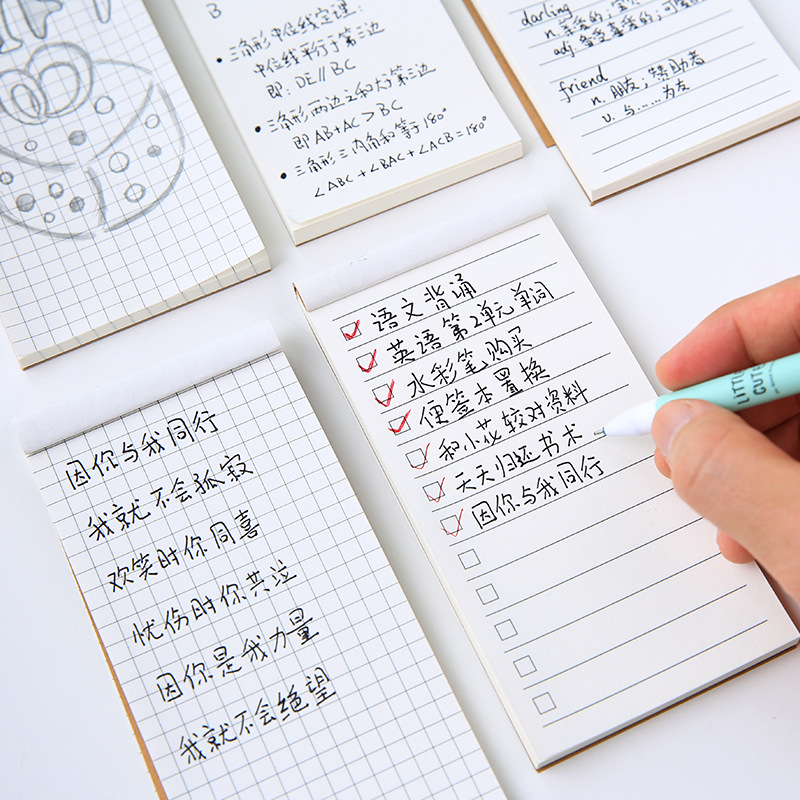 B
三角形中位线定理:
中位线平行于第三边
即: DE∥BC
三角形两边之和大于第三边
即 AB+AC>BC
三角形三内角和等于180°
∠ABC+∠BAC+∠ACB=180°
darling
n. 亲爱的; 宝
adj. 备受喜爱的; 可
friend
n. 朋友; 赞助者
v. 与……为友
语文背诵
英语第2单元单词
水彩笔购买
便签本置换
和小花较对资料
天天归还书术
因你与我同行
LITTLE
CUTE
因你与我同行
我就不会孤寂
欢笑时你同喜
忧伤时你共泣
因你是我力量
我就不会绝望